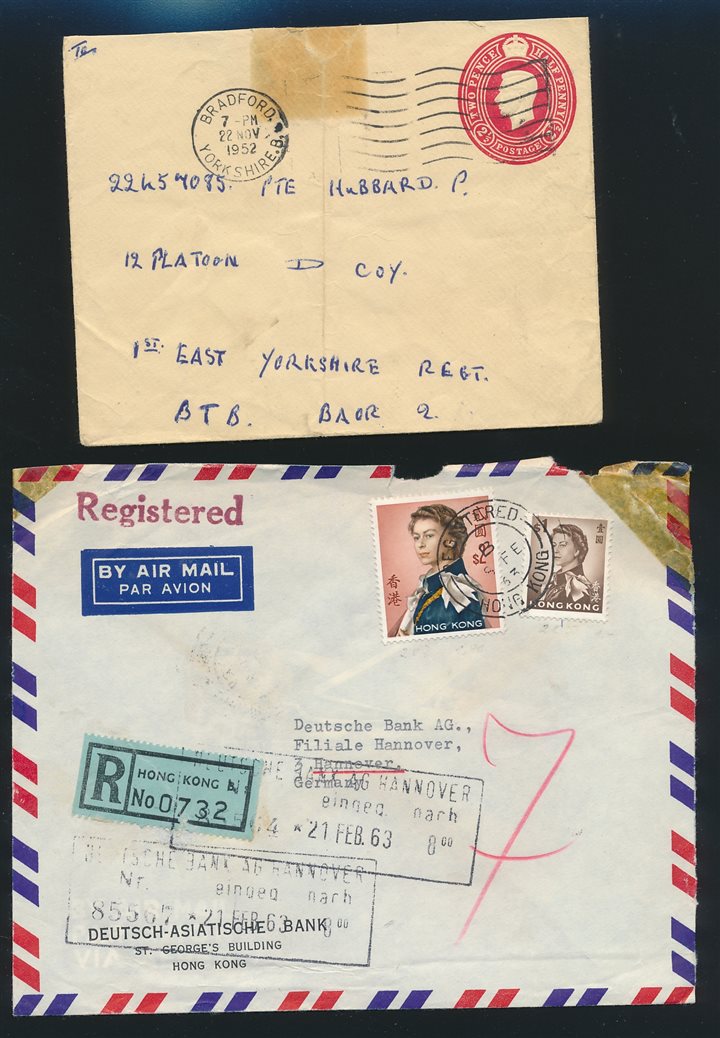 To
BRADFORD.
7 - PM
22 NOV
1952
YORKSHIRE.B.
TWO PENCE HALFPENNY
2½ POSTAGE 2½
PTE HUBBARD. P.
12 PLATOON D COY.
1ST. EAST YORKSHIRE REGT.
BTB. BAOR 2.
Registered
BY AIR MAIL
PAR AVION
圓
$2
香港
HONG KONG
REGISTERED
HONG KONG
$1
壹圓
香港
HONG KONG
Deutsche Bank AG.,
Filiale Hannover,
3 Hannover.
Germany
7
R
HONG KONG
No. 0732
DEUTSCHE BANK AG HANNOVER
eingeg. nach
* 21 FEB. 63 8 00
DEUTSCHE BANK AG HANNOVER
Nr. eingeg. nach
85567 * 21 FEB. 63 8 00
DEUTSCH-ASIATISCHE BANK
ST. GEORGE'S BUILDING
HONG KONG